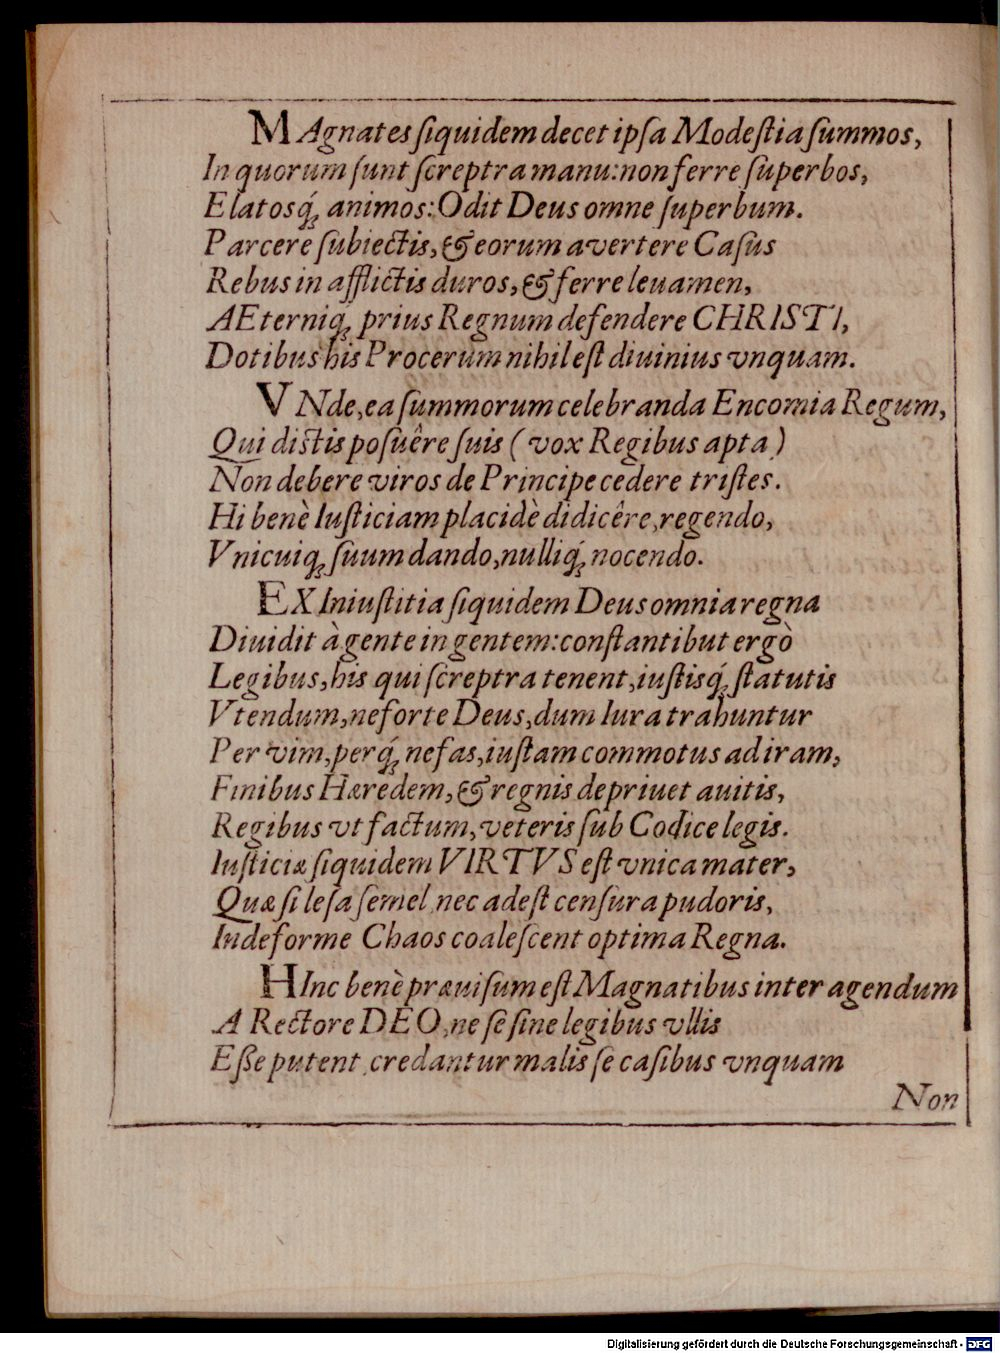 MAgnates ſiquidem decet ipſa Modeſtia ſummos,
In quorum ſunt ſcreptra manu: non ferre ſuperbos,
Elatosq́; animos: Odit Deus omne ſuperbum.
Parcere ſubiectis, & eorum avertere Caſus
Rebus in afflictis duros, & ferre leuamen,
AEterniq́; prius Regnum defendere CHRISTI,
Dotibus his Procerum nihil eſt diuinius vnquam.
VNde, ea ſummorum celebranda Encomia Regum,
Qui dictis poſuêre ſuis (vox Regibus apta)
Non debere viros de Principe cedere triſtes.
Hi benè Iuſticiam placidè didicêre, regendo,
Vnicuiq; ſuum dando, nulliq́; nocendo.
EX Iniuſtitia ſiquidem Deus omnia regna
Diuidit à gente in gentem: conſtantibut ergò
Legibus, his qui ſcreptra tenent, iuſtisq́; ſtatutis
Vtendum, ne forte Deus, dum Iura trahuntur
Per vim, perq́; nefas, iuſtam commotus ad iram,
Finibus Hæredem, & regnis depriuet auitis,
Regibus vt factum, veteris ſub Codice legis.
Iuſticiæ ſiquidem VIRTVS eſt vnica mater,
Quæ ſi leſa ſemel, nec adeſt cenſura pudoris,
Indeforme Chaos coaleſcent optima Regna.
HInc benè præuiſum eſt Magnatibus inter agendum
A Rectore DEO, ne ſe ſine legibus vllis
Eſſe putent, credantur malis ſe caſibus vnquam
Non
Digitalisierung gefördert durch die Deutsche Forschungsgemeinschaft - DFG